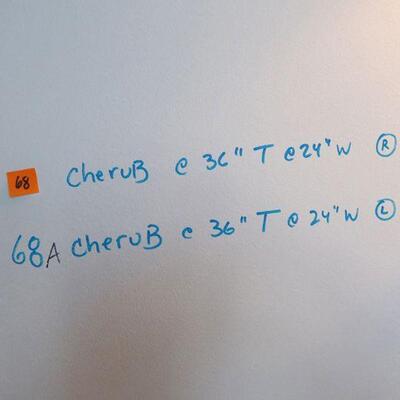 68 CheruB @ 36" T @ 24" W Ⓡ
68A CheruB @ 36" T @ 24" W Ⓛ